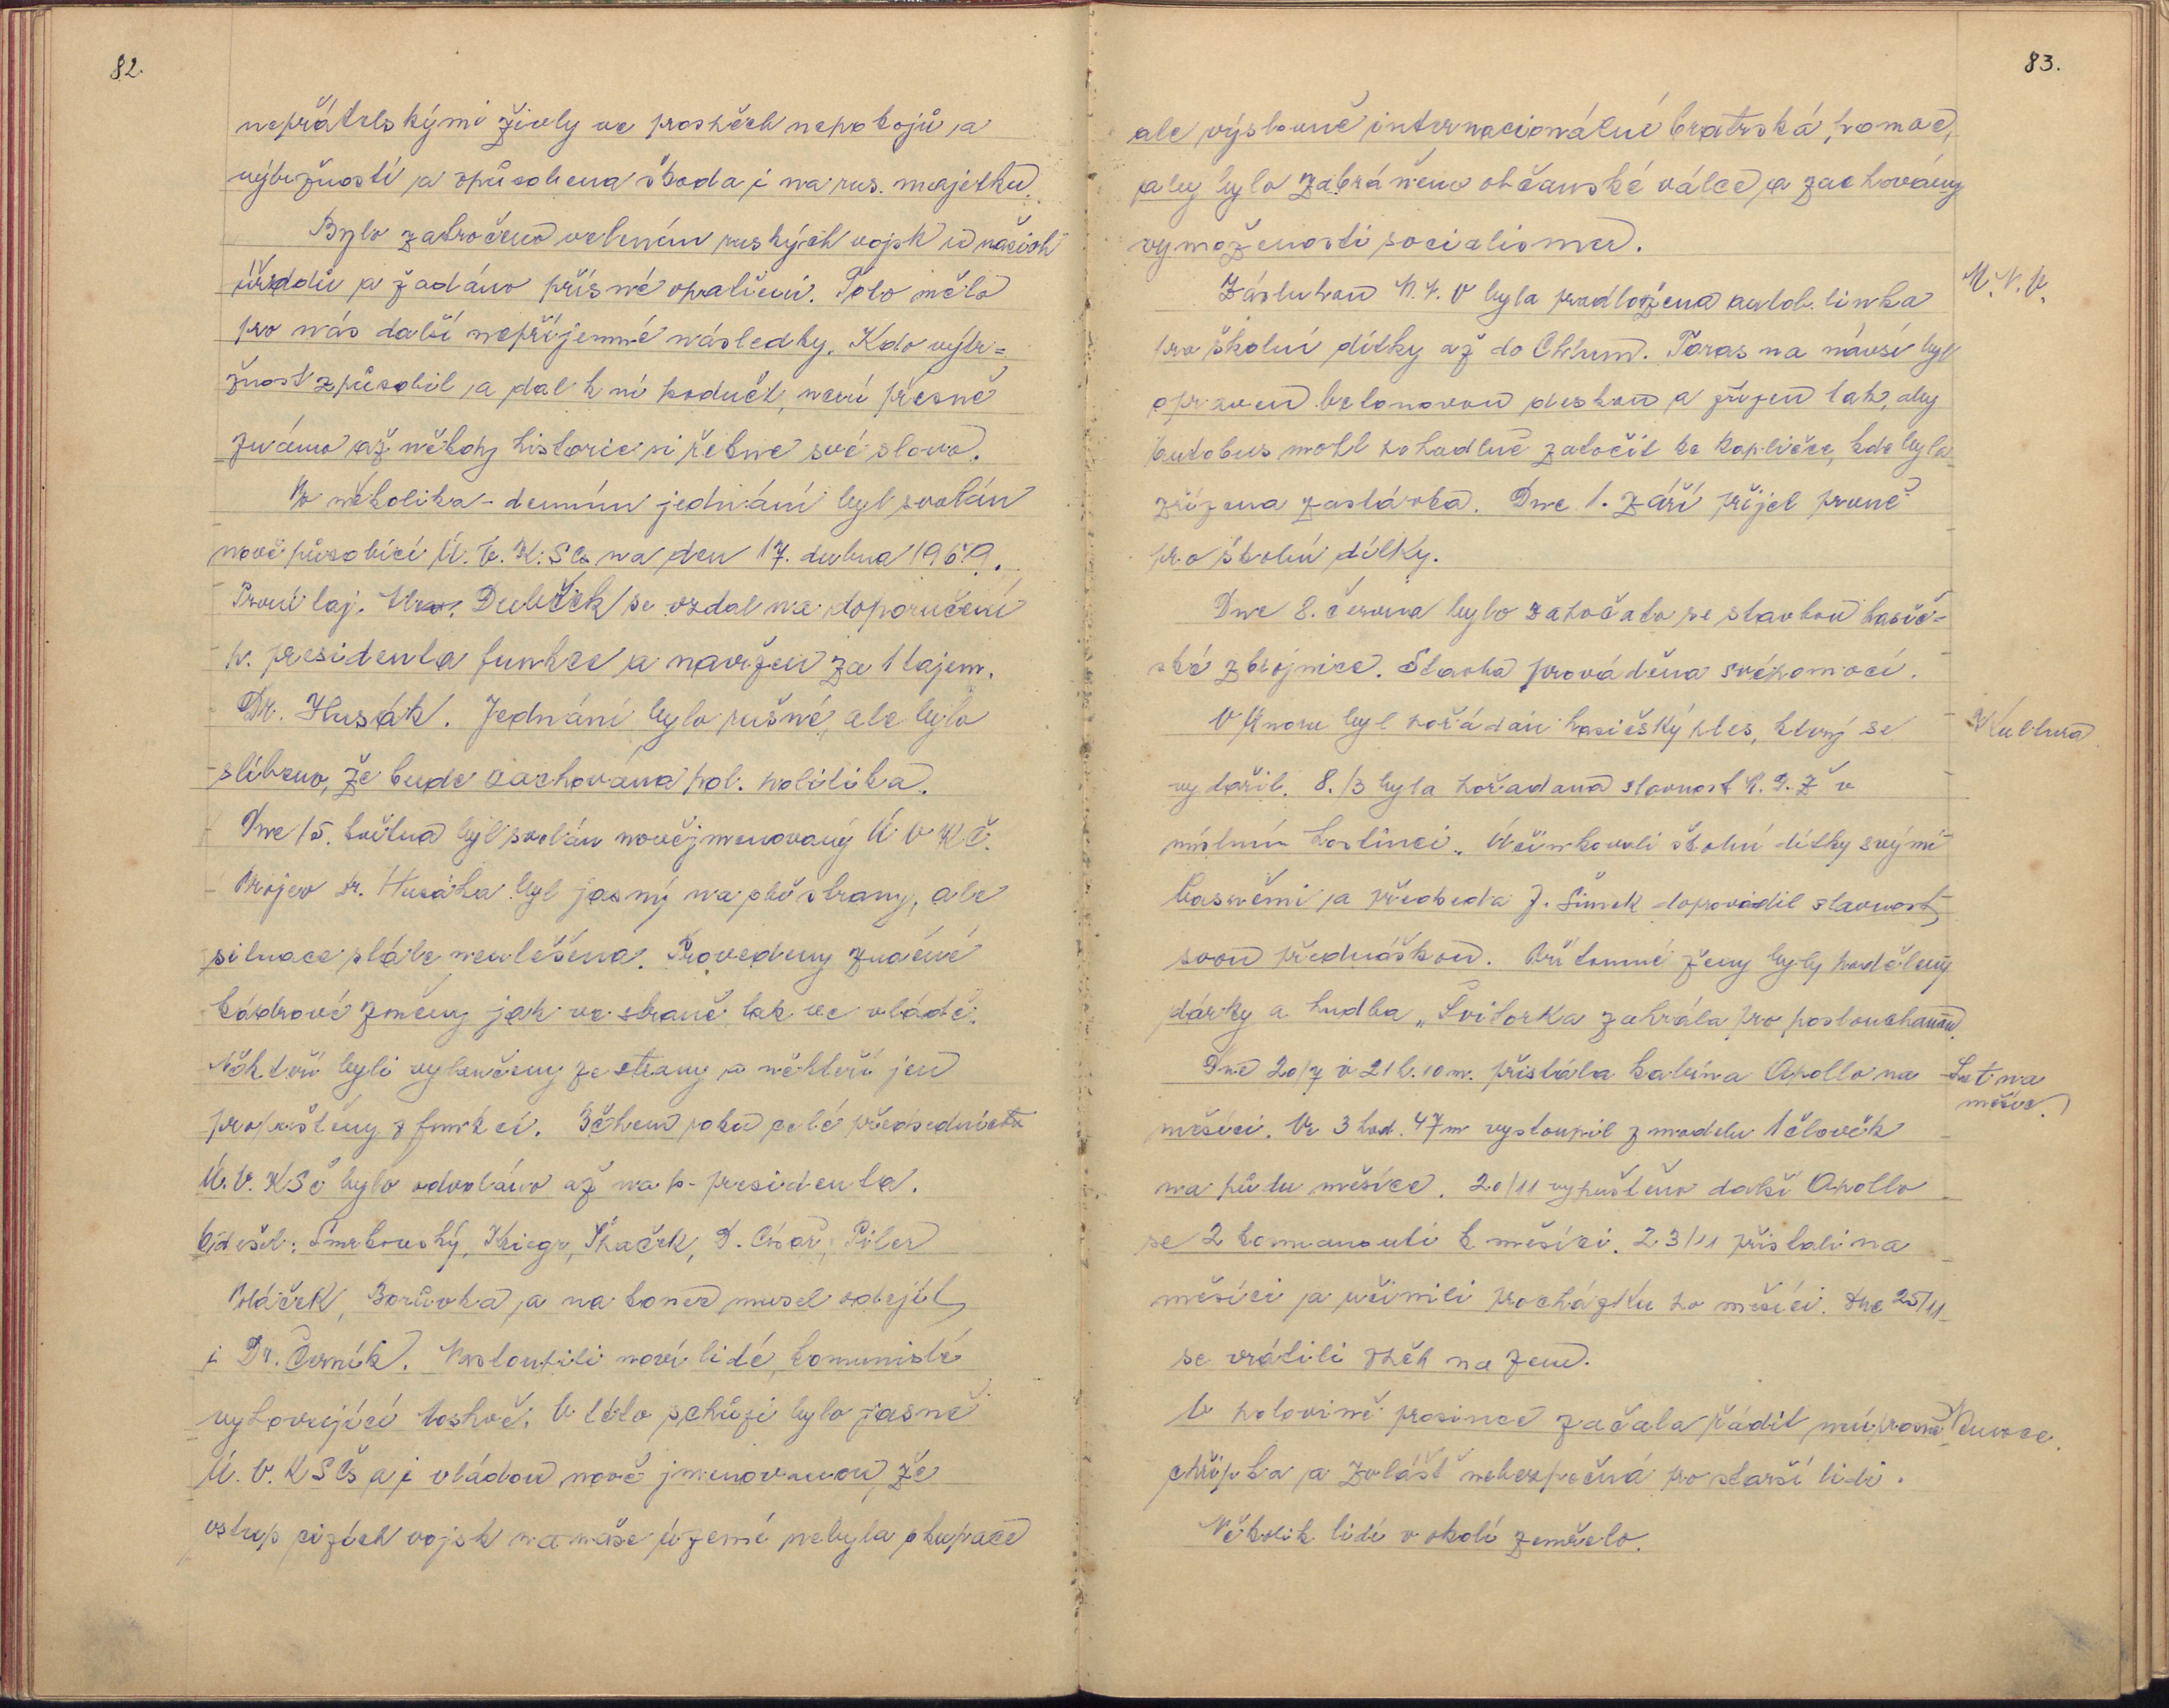 82.
nepřátelskými živly ve prospěch nepokojů a
výtržností a způsobena škoda i na rus. majetku.
Bylo zakročeno velením ruských vojsk u našich
úřadů a žádáno přísné opatření. Toto mělo
pro nás další nepříjemné následky. Kdo výtr=
žnost způsobil a dal k ní podnět, není přesně
známo až někdy historie si řekne své slovo.
Po několika-denním jednání byl svolán
nově působící Ú.V.K.SČs na den 17. dubna 1969.
První taj. Dubček se vzdal na doporučení
p. presidenta funkce a navržen za 1 tajem.
Dr. Husák. Jednání bylo rušné, ale bylo
slíbeno, že bude zachována pol. politika.
Dne 15. května byl svolán novějmenovaný Ú V K Č.
Projev dr. Husáka byl jasný na obě strany, ale
situace stále neutěšena. Provedeny značné
kádrové změny jak ve straně tak ve vládě.
Někteří byli vyloučeny ze strany a někteří jen
propuštěny z funkcí. Během roku celé předsednictv
Ú.V. KSČ bylo odvoláno až na p-presidenta.
Odešel: Smrkovský, Kriegr, Špaček, D. Císař, Piler
Poláček, Borůvka a na konec musel odejít
i Dr. Černík. Nastoupili noví lidé, komunisté
vyhovující Moskvě. V této schůzi bylo jasně
Ú.V. KSČs a i vládou nově jmenovanou, že
vstup cizích vojsk na naše území nebyla okupace
83.
ale výslovně internacionální bratrská pomoc,
aby bylo zabráněno občanské válce a zachovány
vymoženosti socialismu.
M.N.V.
Zásluhou N.V.V byla prodloužena autob. linka
pro školní dítky až do Chlum. Taras na návsi byl
opraven betonovou deskou a zřízen tak, aby
autobus mohl pohodlně zatočit ke kapličce, kde byla
zřízena zastávka. Dne 1. září přijel prvně
pro školní dítky.
Dne 8. června bylo započato se stavbou hasič=
ské zbrojnice. Stavba prováděna svépomocí.
Kultura
V únoru byl pořádán hasičský ples, který se
vydařil. 8./3 byla pořadaná slavnost M.D.Ž v
místním hostinci. Účinkovali školní dítky svými
básněmi a předseda J. Šimek doprovodil slavnost
svou přednáškou. Přítomné ženy byly poděleny
dárky a hudba „Svitorka zahrála pro poslouchanou.
Let na
měsíc.
Dne 20/7 v 21 h. 10 m. přistála kabina Apollo na
měsíci. Ve 3 hod. 47 m vystoupil z modelu 1 člověk
na půdu měsíce. 20/11 vypuštěno další Apollo
se 2 komonauti k měsíci. 23/11 přistali na
měsíci a učinili procházku po měsíci. Dne 25/11
se vrátili zpět na zem.
Nemoce.
V polovině prosince začala řádit
chřipka a zvlášť nebezpečná pro starší lidi.
Několik lidí v okolí zemřelo.